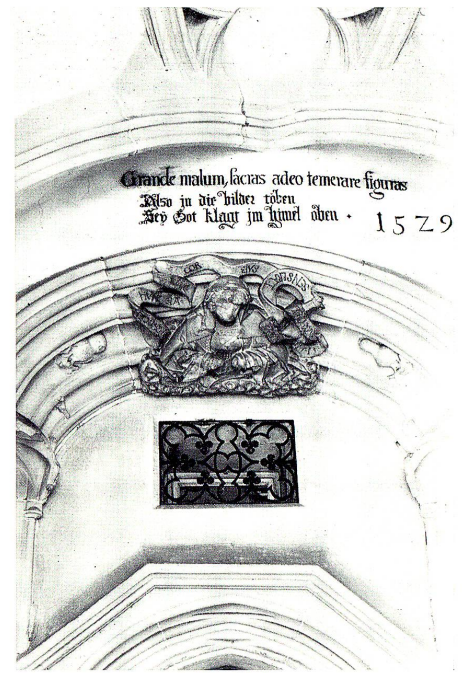 Grande malum, sacras adeo temerare figuras
Also jn die bilder töben
Sey Got klagt jm himel oben · 1529